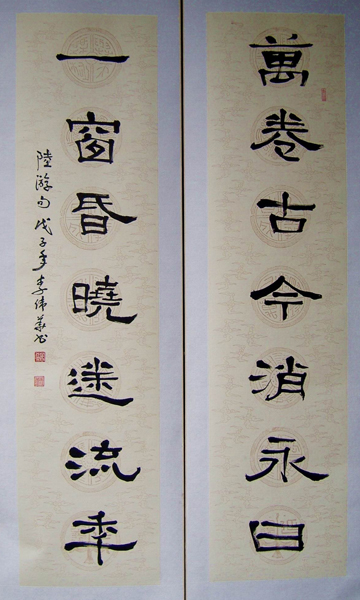 萬卷古今消永日
一窗昏曉送流年
陸游句 戊子年 李 书